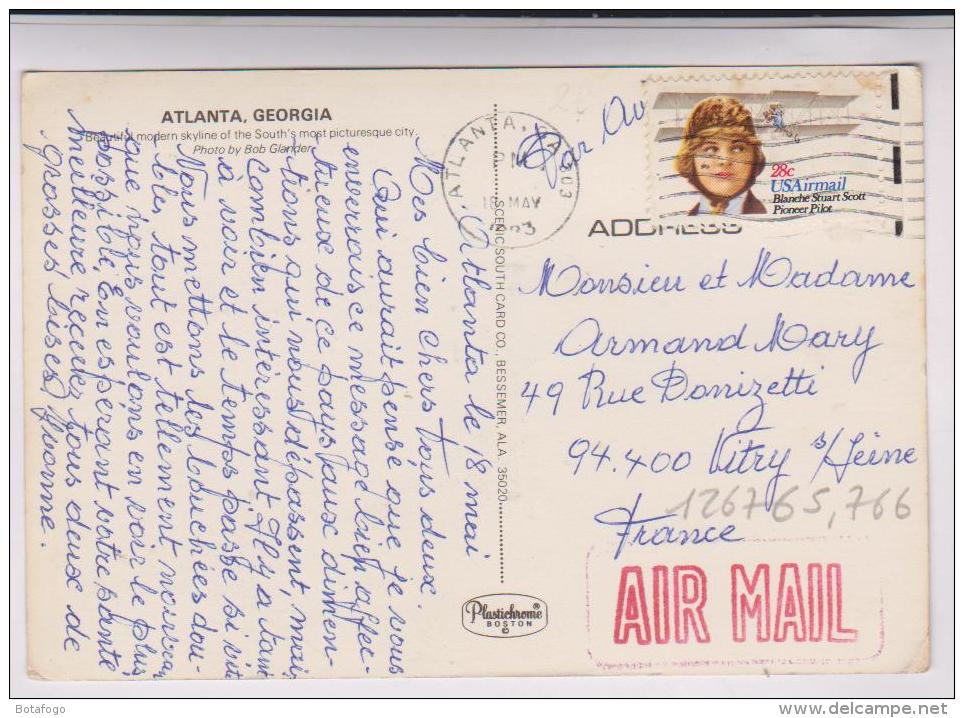 ATLANTA, GEORGIA
Beautiful modern skyline of the South's most picturesque city.
Photo by Bob Glander
Atlanta le 18 mai
Mes bien chers tous deux.
Qui aurait pensé que je vous
enverrais ce message bien affec-
tueux de ce pays aux dimen-
tions qui nous dépassent, mais
Combien intéressant Il y a tant
à voir et le temps passe si vite
Nous mettons les bouchées dou-
bles tout est tellement
que nous voulons en voir le plus
possible, En espérant votre santé
meilleure recevez tous deux de
Grosses bises Yvonne.
SCENIC SOUTH CARD CO., BESSEMER, ALA. 35020
Plastichrome®
BOSTON
©
ATLANTA, GA 303
PM
18 MAY
Par Av
28c
USAirmail
Blanche Stuart Scott
Pioneer Pilot
ADDRESS
Monsieur et Madame
Armand Mary
49 Rue Donizetti
94.400 Vitry s/Seine
126765,766
France
AIR MAIL
Botafogo
www.delcampe.net